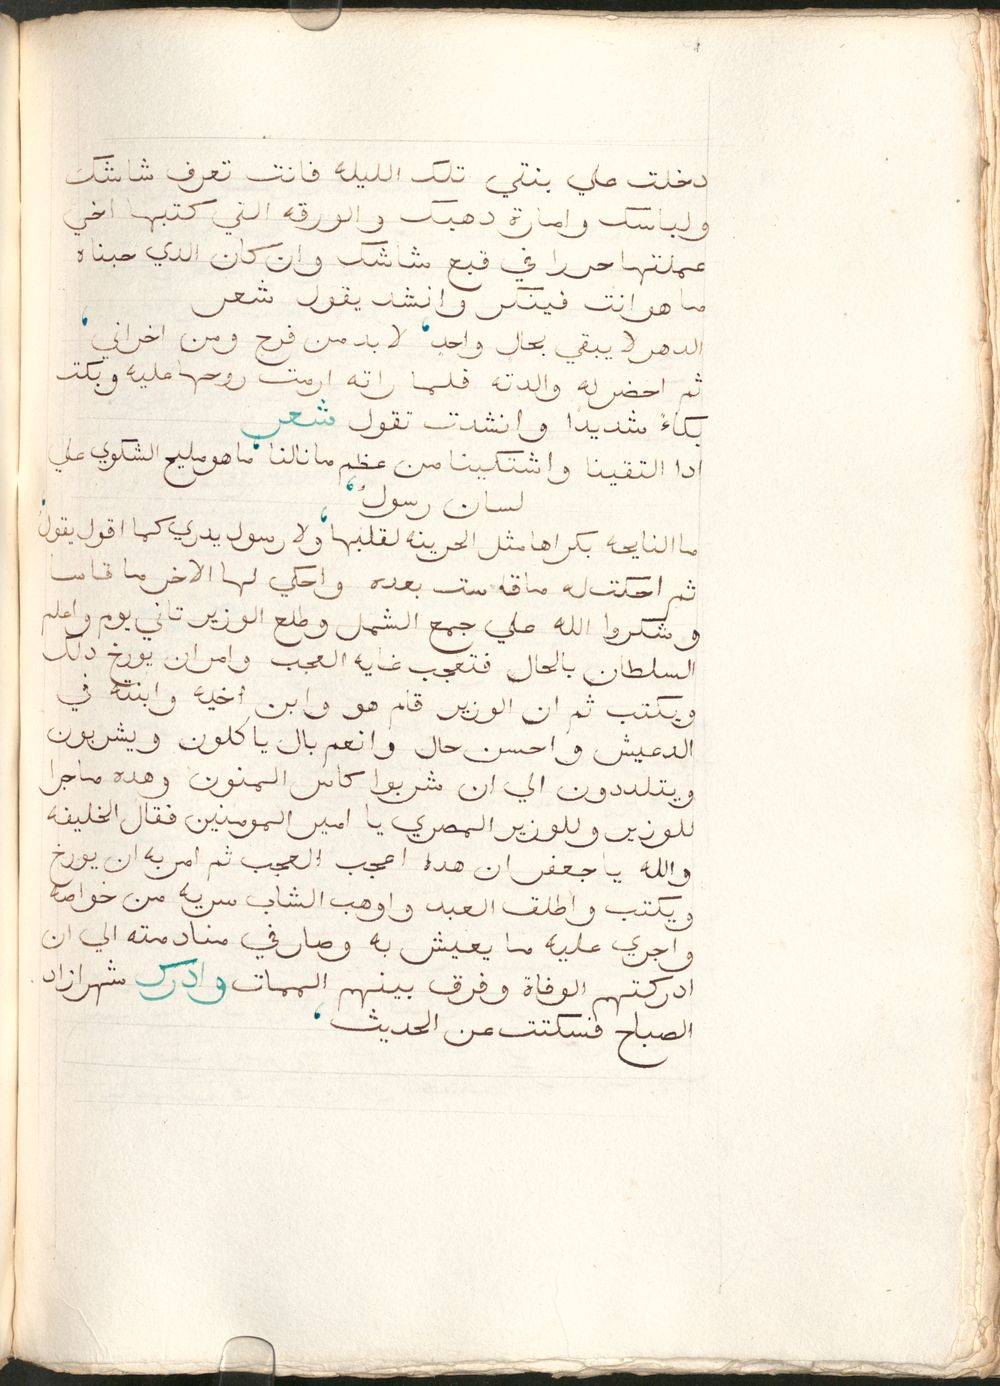 دخلت علي بنتي تلك الليله فانت تعرف شاشك
ولباسك وامارة دهبك والورقه التي كتبها اخي
عملتها حرزا في قبع شاشك وان كان الدي حبناه
ما هو انت فينكر وانشد يقول شعر
الدهر لا يبقي بحال واحد لا بد من فرح ومن احزاني
ثم احضر له والدته فلما راته ارمت روحها عليه وبكت
بكاءً شديدًا وانشدت تقول شعر
ادا التقينا واشتكينا من عظم ما نالنا ما هو مليح الشكوي علي
لسان رسول
ما النايحه بكراها مثل الحزينه لقلبها ولا رسول يدري كما اقول يقول
ثم احكت له ما قاست بعده واحكي لها الاخر ما قاسا
وشكروا الله علي جمع الشمل وطلع الوزير تاني يوم واعلم
السلطان بالحال فتعجب غايه العجب وامر ان يورخ دلك
ويكتب ثم ان الوزير قام هو وابن أخيه وابنته في
الدعيش واحسن حال وانعم بال ياكلون ويشربون
ويتلددون الي ان شربوا كاس المنون وهده ما جرا
للوزير وللوزير المصري يا امير المومنين فقال الخليفه
والله يا جعفر ان هدا اعجب العجب ثم امر به ان يورخ
ويكتب واطلق العبد واوهب الشاب سريه من خواصه
واجري عليه ما يعيش به وصار في منادمته الي ان
ادركتهم الوفاة وفرق بينهم الممات وادرك شهرازاد
الصباح فسكتت عن الحديث